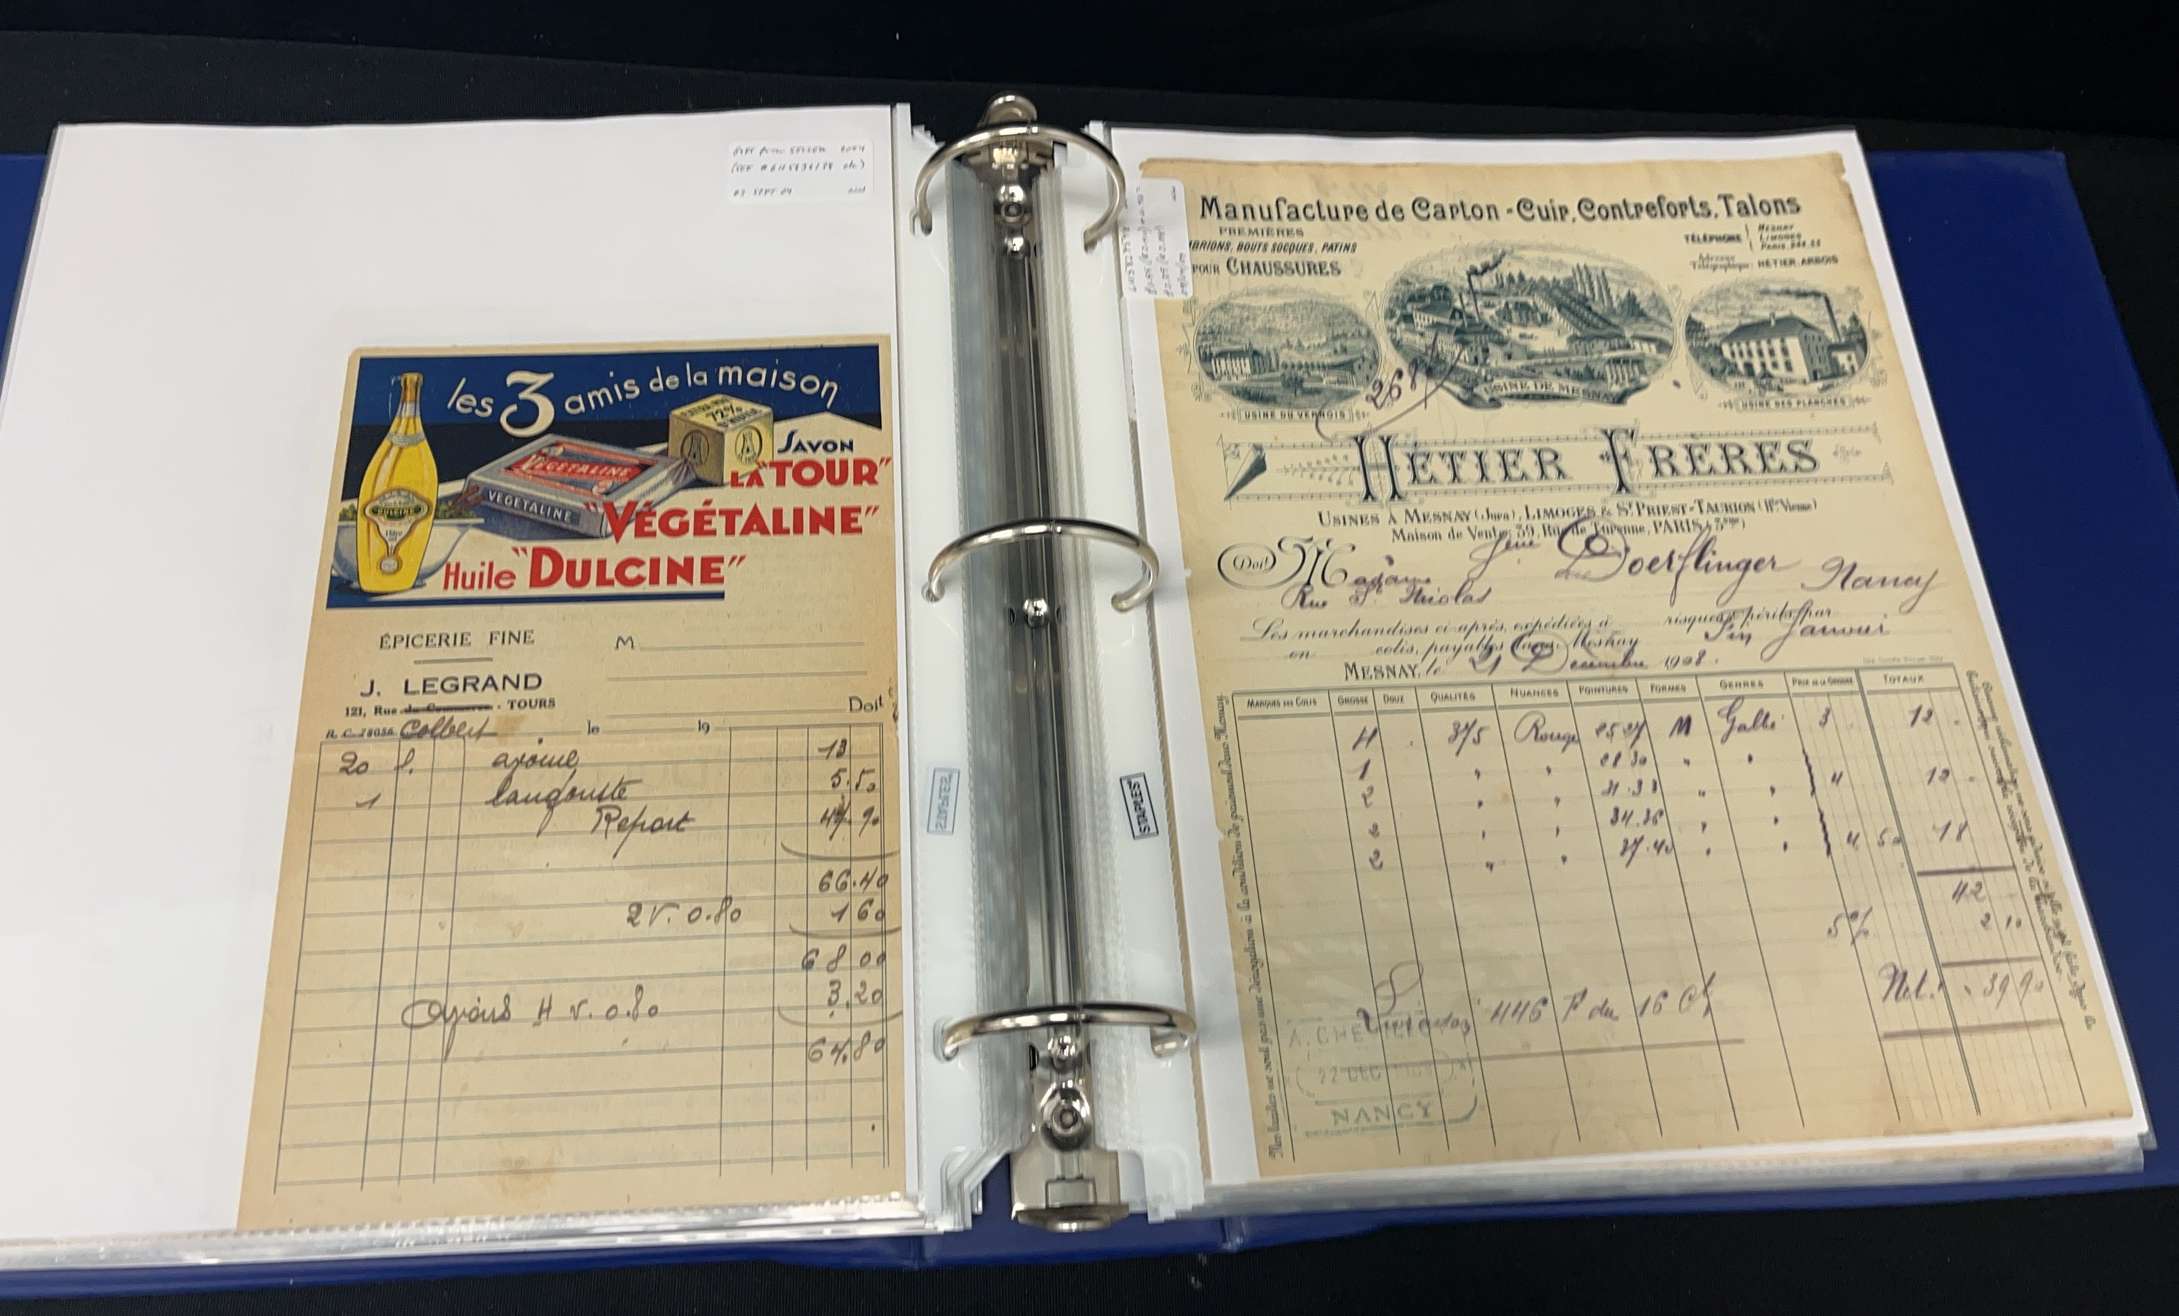 les 3 amis de la maison
EXTRA PUR
72%
SAVON
LA "TOUR"
VÉGÉTALINE
VEGETALINE
"VÉGÉTALINE"
DULCINE
Huile "DULCINE"
ÉPICERIE FINE
M
J. LEGRAND
121, Rue du Commerce - TOURS
Doit
R. C. 18036 Colbert le 19
20 f. 13
1 langouste 5.50
Report 44.90
66.40
2 v. 0.80 1 60
68 00
3.20
4 v. 0.80
64.80
STAPLES
STAPLES
Manufacture de Carton-Cuir, Contreforts, Talons
PREMIÈRES
BRIONS, BOUTS SOCQUES, PATINS
POUR CHAUSSURES
TÉLÉPHONE
MESNAY
LIMOGES
PARIS
Adresse Télégraphique: HÉTIER-ARBOIS
USINE DU VERNOIS
USINE DE MESNAY
USINE DES PLANCHES
HÉTIER FRÈRES
USINES À MESNAY (Jura), LIMOGES & ST PRIEST-TAURION (Hte Vienne)
Maison de Vente: 39, Rue de Turenne, PARIS (3me)
Doit Madame Doerflinger Nancy
Rue St Nicolas
Les marchandises ci-après, expédiées à risques & périls par
en colis, payables dans Mesnay Fin Janvier
MESNAY, le 21 Décembre 1908.
MARQUES DES COLIS GROSSE DOUZ QUALITÉS NUANCES POINTURES FORMES GENRES PRIX DE LA GROSSE TOTAUX
4 375 Rouge 25.27 M 3 12
1 " " 28 30 " "
2 " " 31.33 " " 4 12
" " 34.36 " "
2 " " 37.40 " " 4 50 18
42
5% 2 10
Net. 39 90
446 F du 16 Ct
22 DEC
NANCY